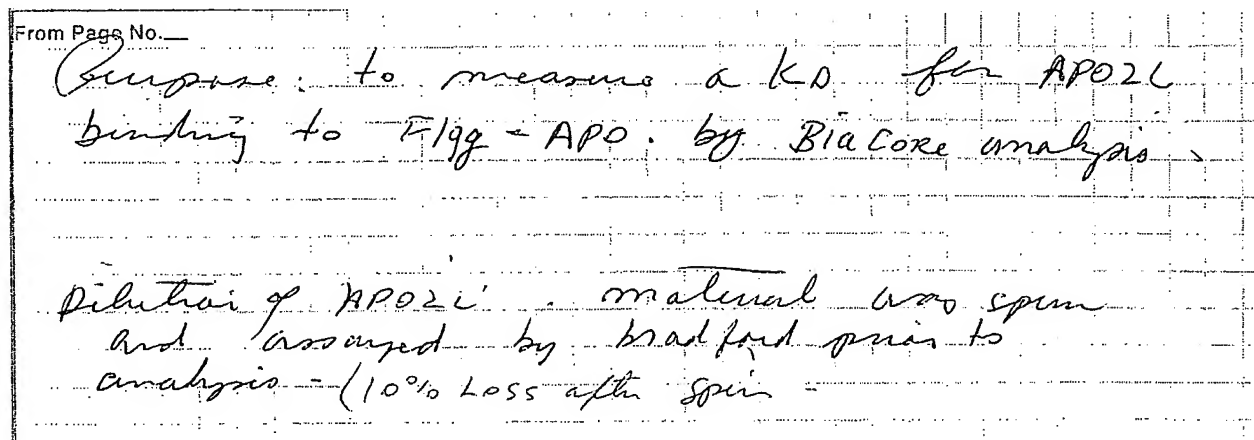 From Page No.__
Purpose: to measure a KD for APO2L
binding to FIgg - APO. by BIaCORe analysis.
Dilution of APO2L . material was spun
and assayed by bradford prior to
analysis - (10% Loss after spin -